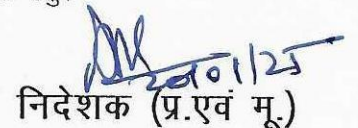 20/01/25
निदेशक (प्र.एवं मू.)